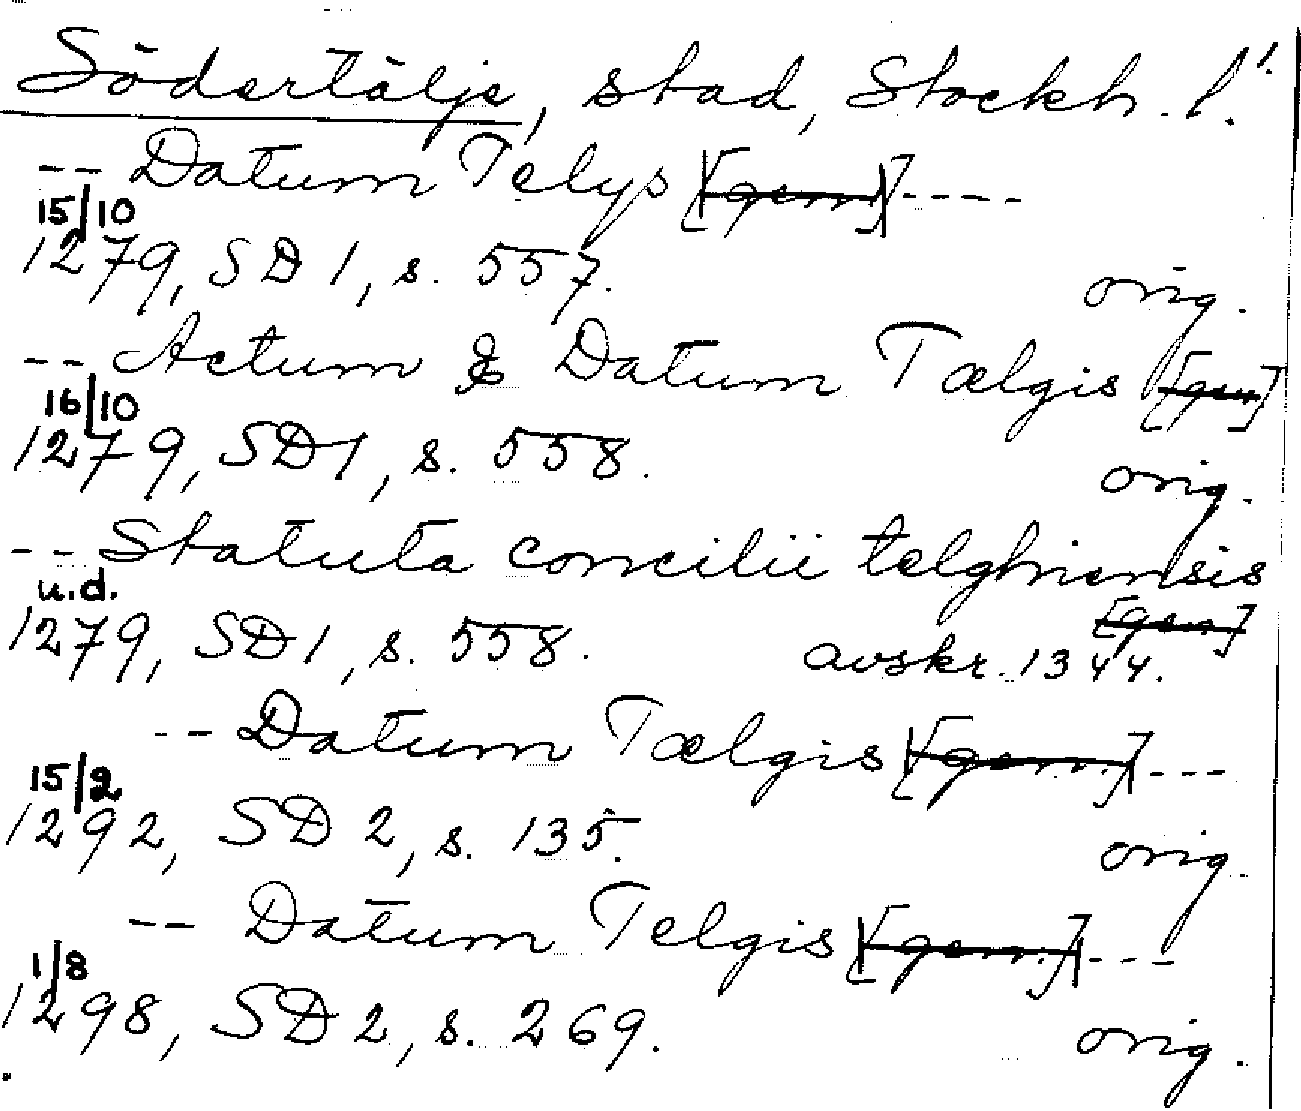 Södertälje, stad, Stockh. l.
-- Datum Telys [gen.] ----
15/10
1279, SD 1, s. 557. orig.
-- Actum & Datum Tælgis [gen]
16/10
1279, SD 1, s. 558. orig.
-- Statuta concilii telghnensis
u.d. [gen.]
1279, SD 1, s. 558. avskr. 1344.
-- Datum Tælgis [gen.] ---
15/2
1292, SD 2, s. 135. orig.
-- Datum Telgis [gen.] ---
1/8
1298, SD 2, s. 269. orig.